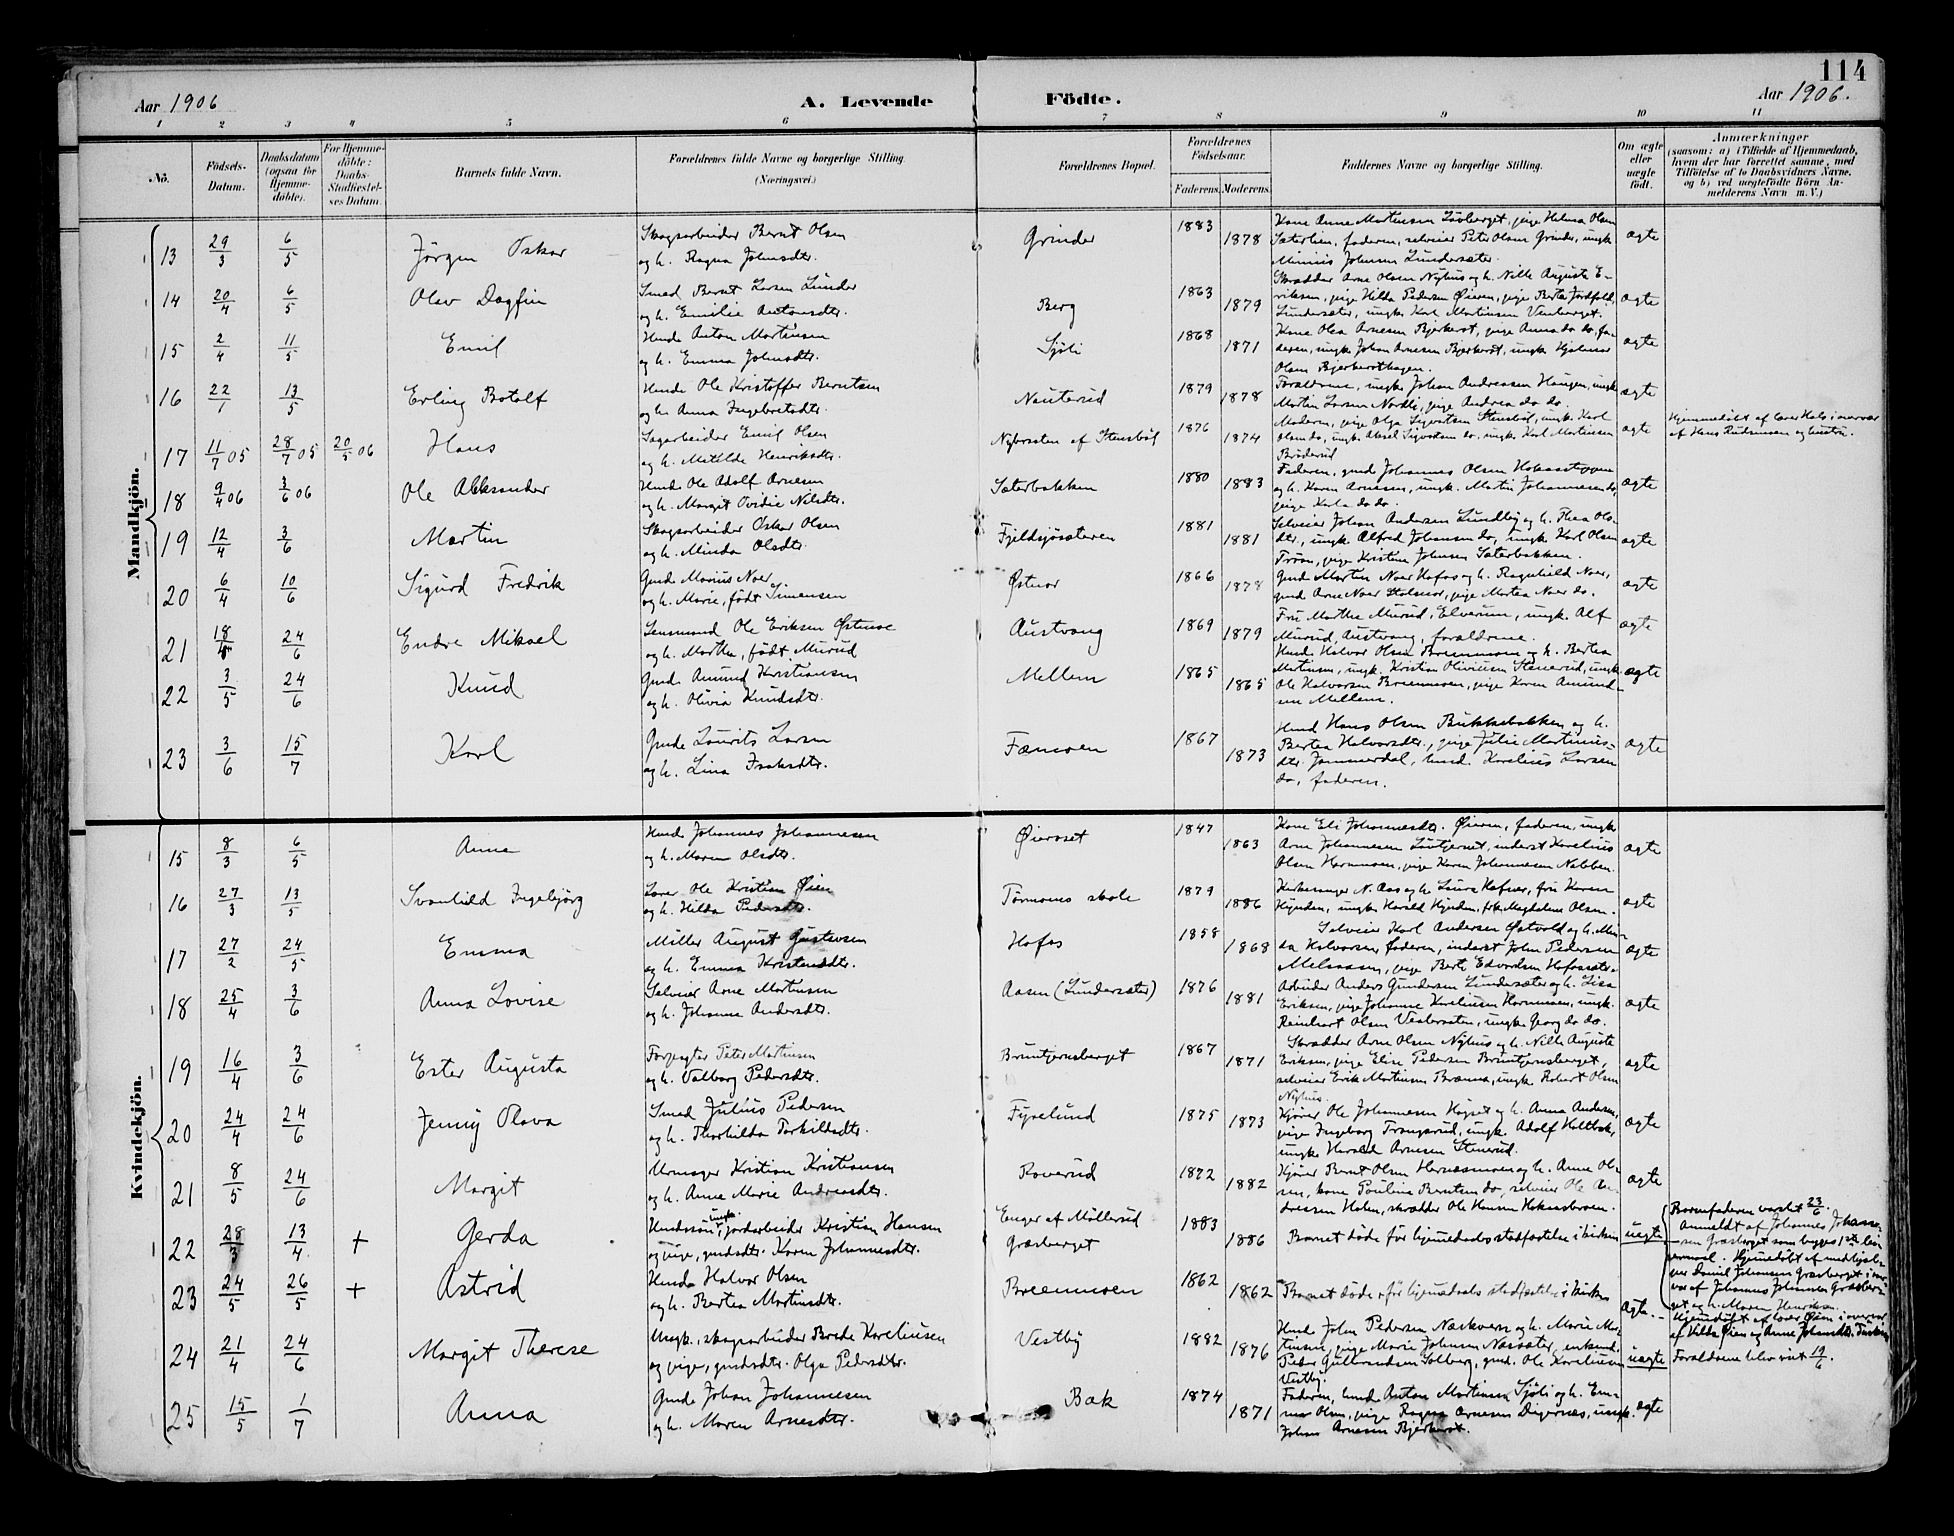 114
Aar 1906
A. Levende Födte.
Aar 1906.
1 2 3 4 5 6 7 8 9 10 11
No.
Födsels-Datum.
Daabsdatum (ogsaa for Hjemme-döbte).
For Hjemme-döbte: Daabs-Stadfæstel-ses Datum.
Barnets fulde Navn.
Forældrenes fulde Navne og borgerlige Stilling. (Næringsvei.)
Forældrenes Bopæl.
Forældrenes Födselsaar.
Faderens. Moderens.
Faddernes Navne og borgerlige Stilling.
Om ægte eller uægte født.
Anmærkninger
(saasom: a) i Tilfælde af Hjemmedaab, hvem der har forrettet samme, med Tilföielse af to Daabsvidners Navne, og b) ved uægtefödte Börn An-melderens Navn m. V.)
Mandkjön.
13 29/3 6/5 Jörgen Oskar
Skogsarbeider Bernt Olsen
og h. Ragna Johnsdtr.
Grinder 1883 1878
Kone Anne Martinsen Lövberget, pige Helma Olsen
Sæterlien, faderen, selveier Peter Olsen Grinder, ungk.
Minius Johnsen Lundersæter.
ægte
14 20/4 6/5 Olav Dagfin
Smed Bernt Larsen Lunder
og h. Emilie Antonsdtr.
Berg 1863 1879
Skrædder Arne Olsen Nyhus og h. Nille Auguste E-
riksen, pige Hilda Pedersen Øieren, pige Berta
Lundersæter, ungk. Karl Martinsen
ægte
15 2/4 11/5 Emil
Husmd. Anton Martinsen
og h. Emma Johnsdtr.
Sjöli 1868 1871
Kone Olea Arnesen Bjerkerot, pige Anna do do, fa-
deren, ungk. Johan Arnesen Bjerkerot, ungk. Hjalmar
Olsen Bjerkerothagen.
ægte
16 22/1 13/5 Erling Botolf
Husmd. Ole Kristoffer Berntsen
og h. Anna Ingebretsdtr.
Nauterud 1879 1878
Forældrene, ungk. Johan Andreasen Haugen, ungk.
Martin Larsen Nordli, pige Andrea do do.
ægte
17 11/7 05 28/7 05 20/5 06 Hans
Sagarbeider Emil Olsen
og h. Matilde Henriksdtr.
Nybraaten af Stensböl 1876 1874
Moderen, pige Olga Sigvartsen Stensböl, ungk. Karl
Olsen do, ungk. Aksel Sigvartsen do, ungk. Karl Martinsen
Bröderud
ægte
Hjemmedöbt af lærer Hals i overvær
af Hans Rudsmoen og hustru.
18 9/4 06 3/6 06 Ole Aleksander
Husmd. Ole Adolf Arnesen
og h. Margit Ovidie Nilsdtr.
Sæterbakken 1880 1883
Faderen, gmd. Johannes Olsen
og h. Karen Arnesen, ungk. Martin Johannesen do,
pige Karla do do.
ægte
19 12/4 3/6 Martin
Skogsarbeider Oskar Olsen
og h. Minda Olsdtr.
Fjeldsjösæteren 1881 1881
Selveier Johan Andersen Lundby og h. Thea Ols-
dtr., ungk. Alfred Johansen do, ungk. Karl Olsen
Tröen, pige Kristine Johnsen Sæterbakken.
ægte
20 6/4 10/6 Sigurd Fredrik
Gmd. Marius Noer
og h. Marie, født Simensen
Østnor 1866 1878
Gmd. Martin Noer Hofos og h. Ragnhild Noer,
gmd. Arne Noer Stolsnor, pige Martea Noer do.
ægte
21 18/4 24/6 Endre Mikael
Lensmand Ole Eriksen Østmoe
og h. Marthe, født Murud
Austvang 1869 1879
Fru Marthe Murud, Elverum, ungk. Alf
Murud, Austvang, forældrene.
ægte
22 3/5 24/6 Knud
Gmd. Amund Kristiansen
og h. Olivia Knudsdtr.
Mellem 1865 1865
Husmd. Halvor Olsen Breenmoen og h. Bertea
Martinsen, ungk. Kristian Oliviusen Stenerud, ungk.
Ole Halvorsen Breenmoen, pige Karen Amund-
sen Mellem.
ægte
23 3/6 15/7 Karl
Gmd. Laurits Larsen
og h. Lina Isaksdtr.
Fæmoen 1867 1873
Husmd. Hans Olsen Bukkebakken og h.
Bertea Halvorsdtr., pige Julie Martinius-
dtr. Jammerdal, husmd. Karelius Larsen
do, faderen.
ægte
Kvindekjön.
15 8/3 6/5 Anna
Husmd. Johannes Johannesen
og h. Maren Olsdtr.
Øieroset 1847 1863
Kone Eli Johannesdtr. Øieren, faderen, ungk.
Arne Johannesen Lustjernet, inderst Karelius
Olsen Hornmoen, pige Karen Johannesen Nabben.
ægte
16 27/3 13/5 Svanhild Ingebjörg
Lærer Ole Kristian Øien
og h. Hilda Pedersdtr.
Törmoens skole 1879 1886
Kirkesanger N. Aas og h. Laura Hofnær, fru Karen
Kynden, ungk. Harald Kynden, frk. Magdalene Olsen.
ægte
17 27/2 24/5 Emma
Möller August Gustavsen
og h. Emma Kristensdtr.
Hofos 1858 1868
Selveier Karl Andersen Østvold og h. Min-
da Halvorsen, faderen, inderst John Pedersen
Melaasen, pige Berte Edvardsen Hofossæter.
ægte
18 25/4 3/6 Anna Lovise
Selveier Arne Martinsen
og h. Johanne Andersdtr.
Aasen (Lundersæter) 1876 1881
Arbeider Anders Gundersen Lundersæter og h. Lisa
Eriksen, pige Johanne Kareliusen Hornmoen, ungk.
Reinhart Olsen Vesbraaten, ungk. Georg do do.
ægte
19 16/4 3/6 Ester Augusta
Forpagter Peter Martinsen
og h. Valborg Pedersdtr.
Bruntjernsberget 1867 1871
Skrædder Arne Olsen Nyhus og h. Nille Auguste
Eriksen, pige Elise Pedersen Bruntjernsberget,
selveier Erik Martinsen Brænna, ungk. Robert Olsen
Nyhus.
ægte
20 24/4 24/6 Jenny Olava
Smed Julius Pedersen
og h. Thorhilda Torkildsdtr.
Fyrelund 1875 1873
Kjører Ole Johannesen Høgset og h. Anna Andersen,
pige Ingeborg Trangsrud, ungk. Adolf Holtbak,
ungk. Harald Arnesen Stenerud.
ægte
21 8/5 24/6 Margit
Urmager Kristian Kristiansen
og h. Anne Marie Andreasdtr.
Roverud 1872 1882
Kjører Bernt Olsen Hornæsmoen og h. Anne Ol-
sen, kone Pauline Berntsen do, selveier Ole An-
dreassen Holen, skrædder Ole Hansen Hokaasbraaten.
ægte
22 28/3 13/4 + Gerda
Husmdssøn, ungk. jordarbeider Kristian Hansen
og pige, gmdsdtr. Karen Johannesdtr.
Enger af Möllerud
Græsberget 1883 1886
Barnet döde för hjemedaabs stadfæstelse i kirken
uægte
Barnefaderen varslet 23/6.
Anmeldt af Johannes Johanne-
sen Græsberget som bygges 1ste lei-
ermaal. Hjemedöbt af medhjæl-
per Daniel Johansen Græsberget i over-
vær af Johannes Johannesen Græsber-
get og h. Maren Henriksen
23 24/5 26/5 + Astrid
Husmd. Halvor Olsen
og h. Bertea Martinsdtr.
Breenmoen 1862 1862
Barnet döde för hjemedaabs stadfæstelse i kirken
ægte.
Hjemedöbt af lærer Øien i overvær
af Hilda Øien og Anne Johansdtr.
24 21/4 24/6 Margit Therese
Ungk., skogsarbeider Brede Kareliusen
og pige, gmdsdtr. Olga Pedersdtr.
Vestby 1882 1876
Husmd. John Pedersen Næskværn og h. Marie Mar-
tinsen, pige Marie Johnsen Næssæter, enkemd.
Peter Gulbrandsen Solberg, gmd. Ole Kareliusen
Vestby.
uægte
Forældrene blev viet 19/6.
25 15/5 1/7 Anna
Gmd. Johan Johannesen
og h. Maren Arnesdtr.
Bak 1874 1871
Faderen, husmd. Anton Martinsen Sjöli og h. Em-
ma Olsen, pige Ragna Arnesen Digernæs, ungk.
Johan Arnesen Bjerkerot.
ægte